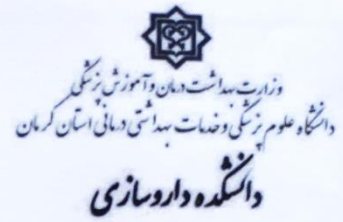 وزارت بهداشت درمان و آموزش پزشکی
دانشگاه علوم پزشکی و خدمات بهداشتی درمانی استان کرمان
دانشکده داروسازی